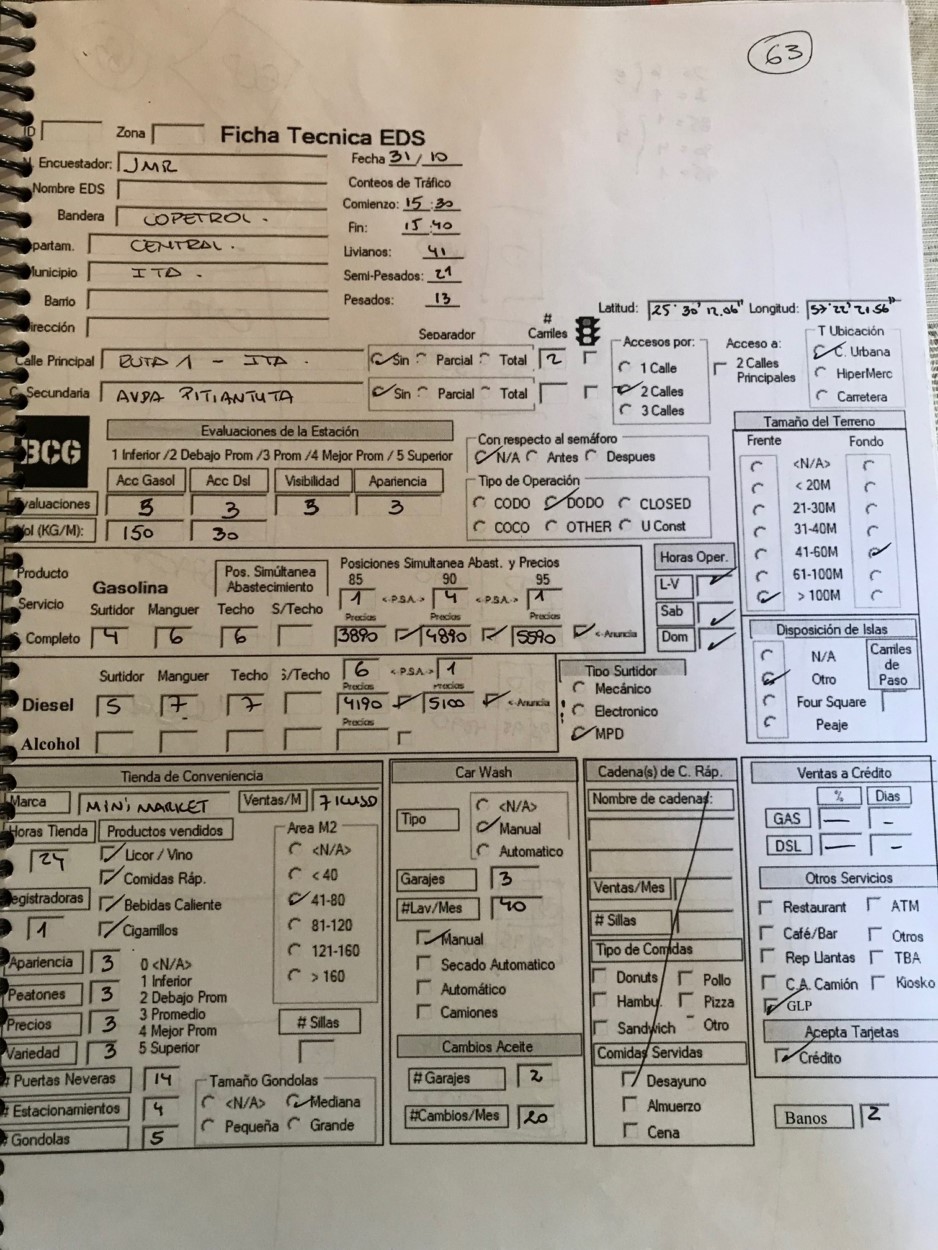 63
ID Zona Ficha Tecnica EDS
Encuestador: JMR Fecha 31/10
Nombre EDS Conteos de Tráfico
Bandera COPETROL. Comienzo: 15:30
partam. CENTRAL. Fin: 15:40
Municipio ITA. Livianos: 41
Barrio Semi-Pesados: 21
Pesados: 13
Dirección Latitud: 25° 30' 12.06" Longitud: 57° 22' 21.56"
Separador # Carriles Accesos por: Acceso a: T Ubicación
Calle Principal RUTA 1 - ITA. Sin Parcial Total 2 1 Calle 2 Calles Principales C. Urbana
2 Calles HiperMerc
Secundaria AVDA PITIANTUTA Sin Parcial Total 3 Calles Carretera
BCG Evaluaciones de la Estación Con respecto al semáforo Tamaño del Terreno
1 Inferior /2 Debajo Prom /3 Prom /4 Mejor Prom / 5 Superior N/A Antes Despues Frente Fondo
Acc Gasol Acc Dsl Visibilidad Apariencia Tipo de Operación <N/A>
valuaciones 3 3 3 3 CODO DODO CLOSED < 20M
ol (KG/M): 150 30 COCO OTHER U Const 21-30M
31-40M
41-60M
61-100M
> 100M
Producto Servicio Gasolina Pos. Simúltanea Abastecimiento Posiciones Simultanea Abast. y Precios Horas Oper.
85 90 95 L-V
1 <-P.S.A.-> 4 <-P.S.A.-> 1 Sab
Surtidor Manguer Techo S/Techo Precios Precios Precios Dom
Completo 4 6 6 3890 4890 5590 <-Anuncia
Disposición de Islas
N/A Carriles de Paso
Otro
Four Square
Peaje
Surtidor Manguer Techo S/Techo 6 <-P.S.A.-> 1 Tipo Surtidor
Precios Precios Mecánico
Diesel 5 7 7 4190 5100 <-Anuncia Electronico
Precios MPD
Alcohol
Tienda de Conveniencia Car Wash Cadena(s) de C. Ráp. Ventas a Crédito
Marca MINI MARKET Ventas/M Nombre de cadenas: % Dias
Horas Tienda Productos vendidos Area M2 Tipo <N/A> GAS — -
24 Licor / Vino <N/A> Manual DSL — -
Comidas Ráp. < 40 Automatico
egistradoras Bebidas Caliente 41-80 Garajes 3 Ventas/Mes Otros Servicios
1 Cigarrillos 81-120 #Lav/Mes 40 # Sillas Restaurant ATM
121-160 Manual Tipo de Comidas Café/Bar Otros
Apariencia 3 0 <N/A> > 160 Secado Automatico Donuts Pollo Rep Llantas TBA
Peatones 3 1 Inferior Automático Hambu. Pizza C.A. Camión Kiosko
2 Debajo Prom Camiones Sandwich Otro GLP
Precios 3 3 Promedio # Sillas
4 Mejor Prom Cambios Aceite Comidas Servidas Acepta Tarjetas
Variedad 3 5 Superior Crédito
# Puertas Neveras 14 Tamaño Gondolas # Garajes 2 Desayuno
# Estacionamientos 4 <N/A> Mediana #Cambios/Mes 20 Almuerzo Banos 2
# Gondolas 5 Pequeña Grande Cena